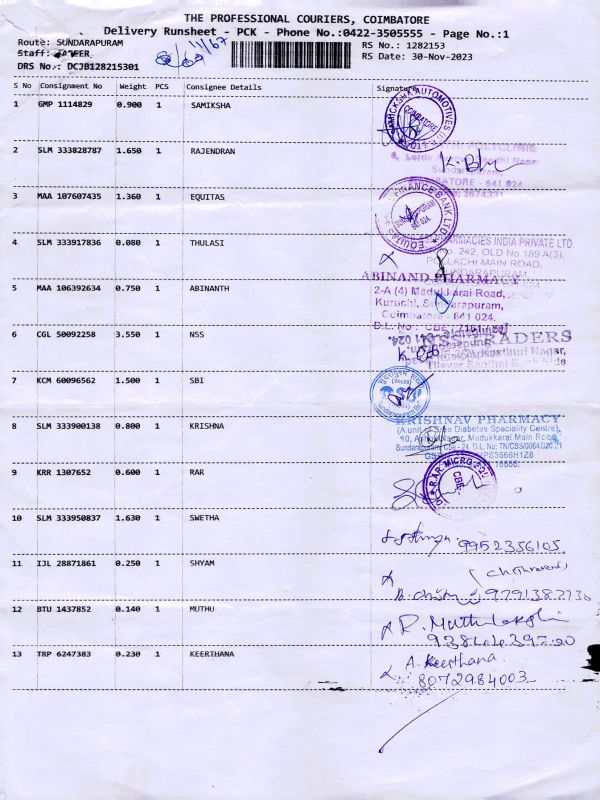 THE PROFESSIONAL COURIERS, COIMBATORE
Delivery Runsheet - PCK - Phone No.:0422-3505555 - Page No.:1
Route: SUNDARAPURAM
RS No.: 1282153
Staff:
RS Date: 30-Nov-2023
DRS No.: DCJB128215301
S No Consignment No Weight PCS Consignee Details Signature
1 GMP 1114829 0.900 1 SAMIKSHA
COIMBATORE
2 SLM 333828787 1.650 1 RAJENDRAN
3 MAA 107607435 1.360 1 EQUITAS
FINANCE BANK LTD
4 SLM 333917836 0.080 1 THULASI
PHARMACIES INDIA PRIVATE LTD.
No. 242, OLD No.189 A(3),
POLLACHI MAIN ROAD,
5 MAA 106392634 0.750 1 ABINANTH
ABINAND PHARMACY
2-A (4) Madukkarai Road,
Kuruchi, Sundarapuram,
Coimbatore - 641 024.
6 CGL 50092258 3.550 1 NSS
7 KCM 60096562 1.500 1 SBI
8 SLM 333900138 0.800 1 KRISHNA
KRISHNAV PHARMACY
(A unit of Sree Diabetes Speciality Centre),
10, Ashok Nagar, Madukkarai Main Road,
9 KRR 1307652 0.600 1 RAR
10 SLM 333950837 1.630 1 SWETHA
9952356105
11 IJL 28871861 0.250 1 SHYAM
12 BTU 1437852 0.140 1 MUTHU
R. Muthulakshmi
13 TRP 6247383 0.230 1 KEERTHANA
A. Keerthana
8072984003